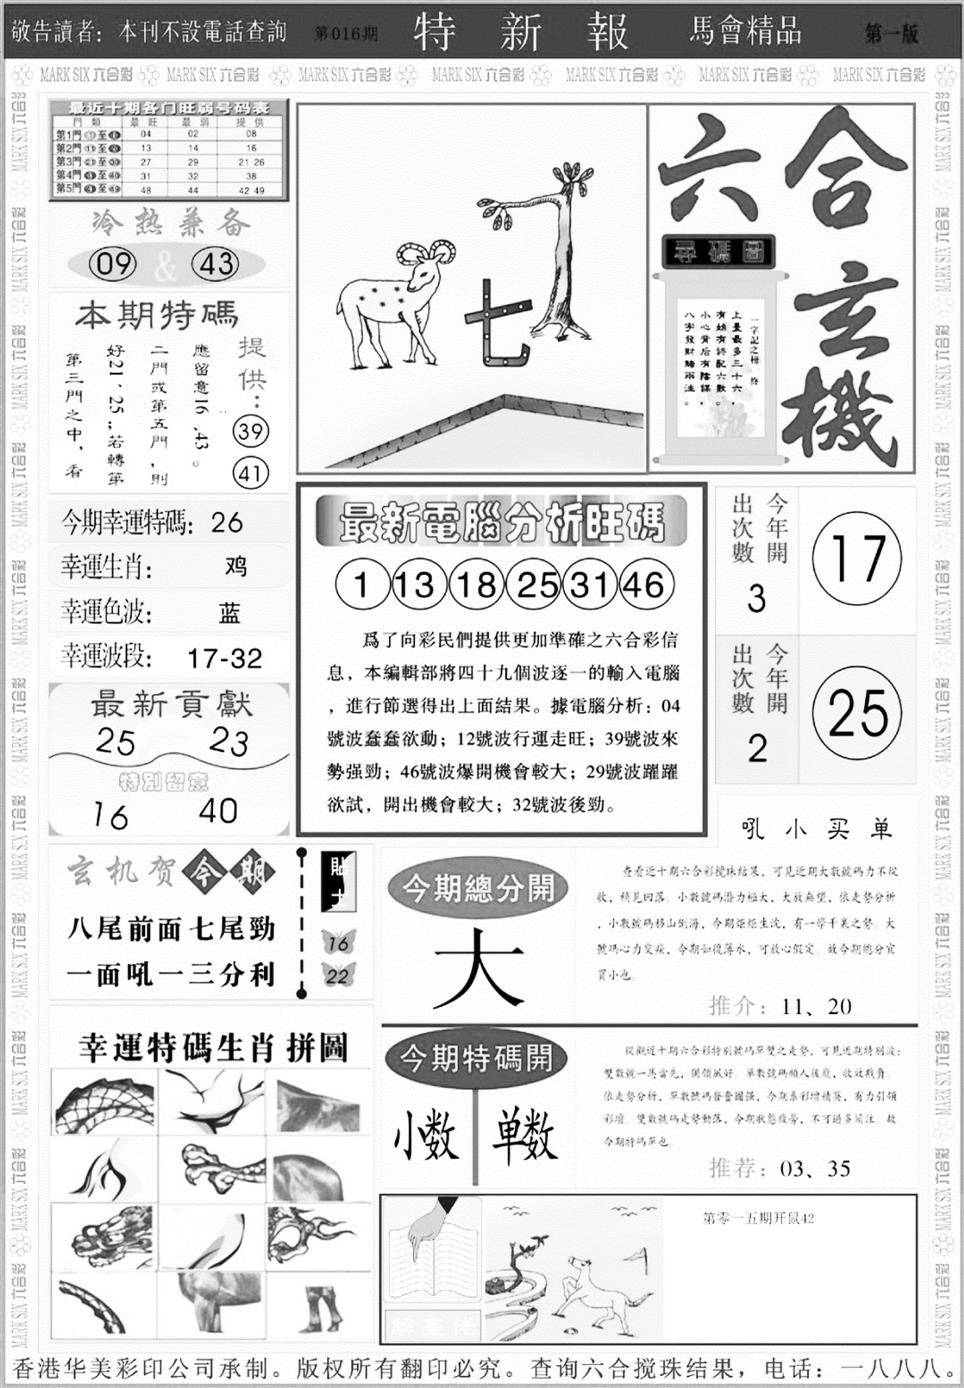 敬告讀者：本刊不設電話查詢
第016期
特新報
馬會精品
第一版
MARK SIX 六合彩 MARK SIX 六合彩 MARK SIX 六合彩 MARK SIX 六合彩 MARK SIX 六合彩 MARK SIX 六合彩 MARK SIX 六合彩
最近十期各门旺弱号码表
門類 最旺 最弱 提供
第1門 至 04 02 08
第2門 至 13 14 16
第3門 至 27 29 21 26
第4門 至 31 32 38
第5門 至 48 44 42 49
冷热兼备
09 & 43
本期特碼
提供：
39
41
第三門之中，看
好21、25；若轉第
二門或第五門，則
應留意16、43。
七
六合玄機
尋碼圖
一字記之曰：終
上量最多三十六，
有始有終配六數。
小心背后有陰謀，
八字發財賭兩注。
今期幸運特碼：26
幸運生肖：鸡
幸運色波：蓝
幸運波段：17-32
最新貢獻
25 23
特別留意
16 40
最新電腦分析旺碼
1 13 18 25 31 46
爲了向彩民們提供更加準確之六合彩信
息，本編輯部將四十九個波逐一的輸入電腦
，進行節選得出上面結果。據電腦分析：04
號波蠢蠢欲動；12號波行運走旺；39號波來
勢强勁；46號波爆開機會較大；29號波躍躍
欲試，開出機會較大；32號波後勁。
今年開
出次數
3
17
今年開
出次數
2
25
吼小买单
玄机贺今期
八尾前面七尾勁
一面吼一三分利
貼士
16
22
今期總分開
大
查看近十期六合彩攪珠結果，可見近期大數號碼力不從
收，稍見回落。小數號碼潛力極大，大放無望，依走勢分析
，小數號碼移山倒海，今期炬炬生沈，有一學千里之勢。大
號碼心力交瘁，今期如復薄水，可放心假定。故今期總分宜
買小也。
推介：11、20
今期特碼開
小数
单数
從觀近十期六合彩特別號碼單雙之走勢，可見近期特別波：
雙數號一馬當先，獨領風好。單數號碼頻人後塵，收效戰負。
依走勢分析，單數號碼發奮圖强，今期系彩壇積英，有力引領
彩壇。雙數號碼走勢動蕩，今期狀態疲勞，不可過多關注。故
今期特碼單也。
推荐：03、35
幸運特碼生肖拼圖
第零一五期开鼠42
香港华美彩印公司承制。版权所有翻印必究。查询六合搅珠结果，电话：一八八八。